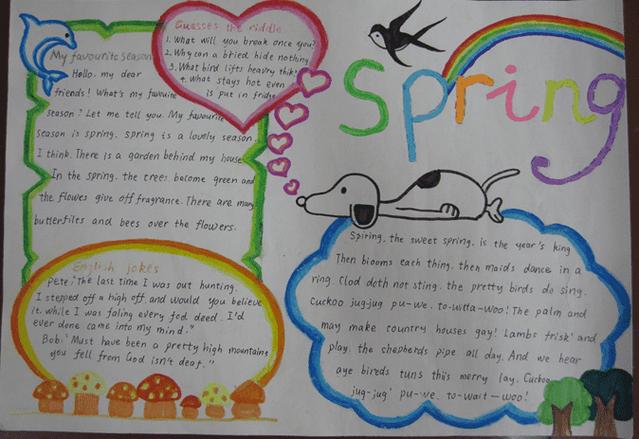 Guesses the riddle
1. What will you break once you?
2. Why can a bried hide nothing
3. What bird lifts heavry thik?
4. What stays hot even
is put in fridge
Spring
My favourite season
Hello, my dear
friends! What's my favuoite
season? Let me tell you. My favourite
season is spring. spring is a lovely season.
I think. There is a garden behind my house
In the spring. the trees become green and
the flowes give off fragrance. There are many
butterfiles and bees over the flowers.
English jokes
Pete: The last time I was out hunting.
I stepped off a high off and would you believe
it. while I was faling every fod deed. I'd
ever done came into my mind."
Bob: Must have been a pretty high mountaine
you fell from God isn't deaf."
Spiring. the sweet spring. is the year's king
Then blooms each thing. then maids dance in a
ring. Clod doth not sting. the pretty birds do sing.
Cuckoo jug-jug pu-we. to-witta-woo! The palm and
may make country houses gay! Lambs frisk' and
play. the shepherds pipe all day. And we hear
aye bireds tuns this merry lay. Cuckoo
jug-jug' pu-we. to-wait-woo!